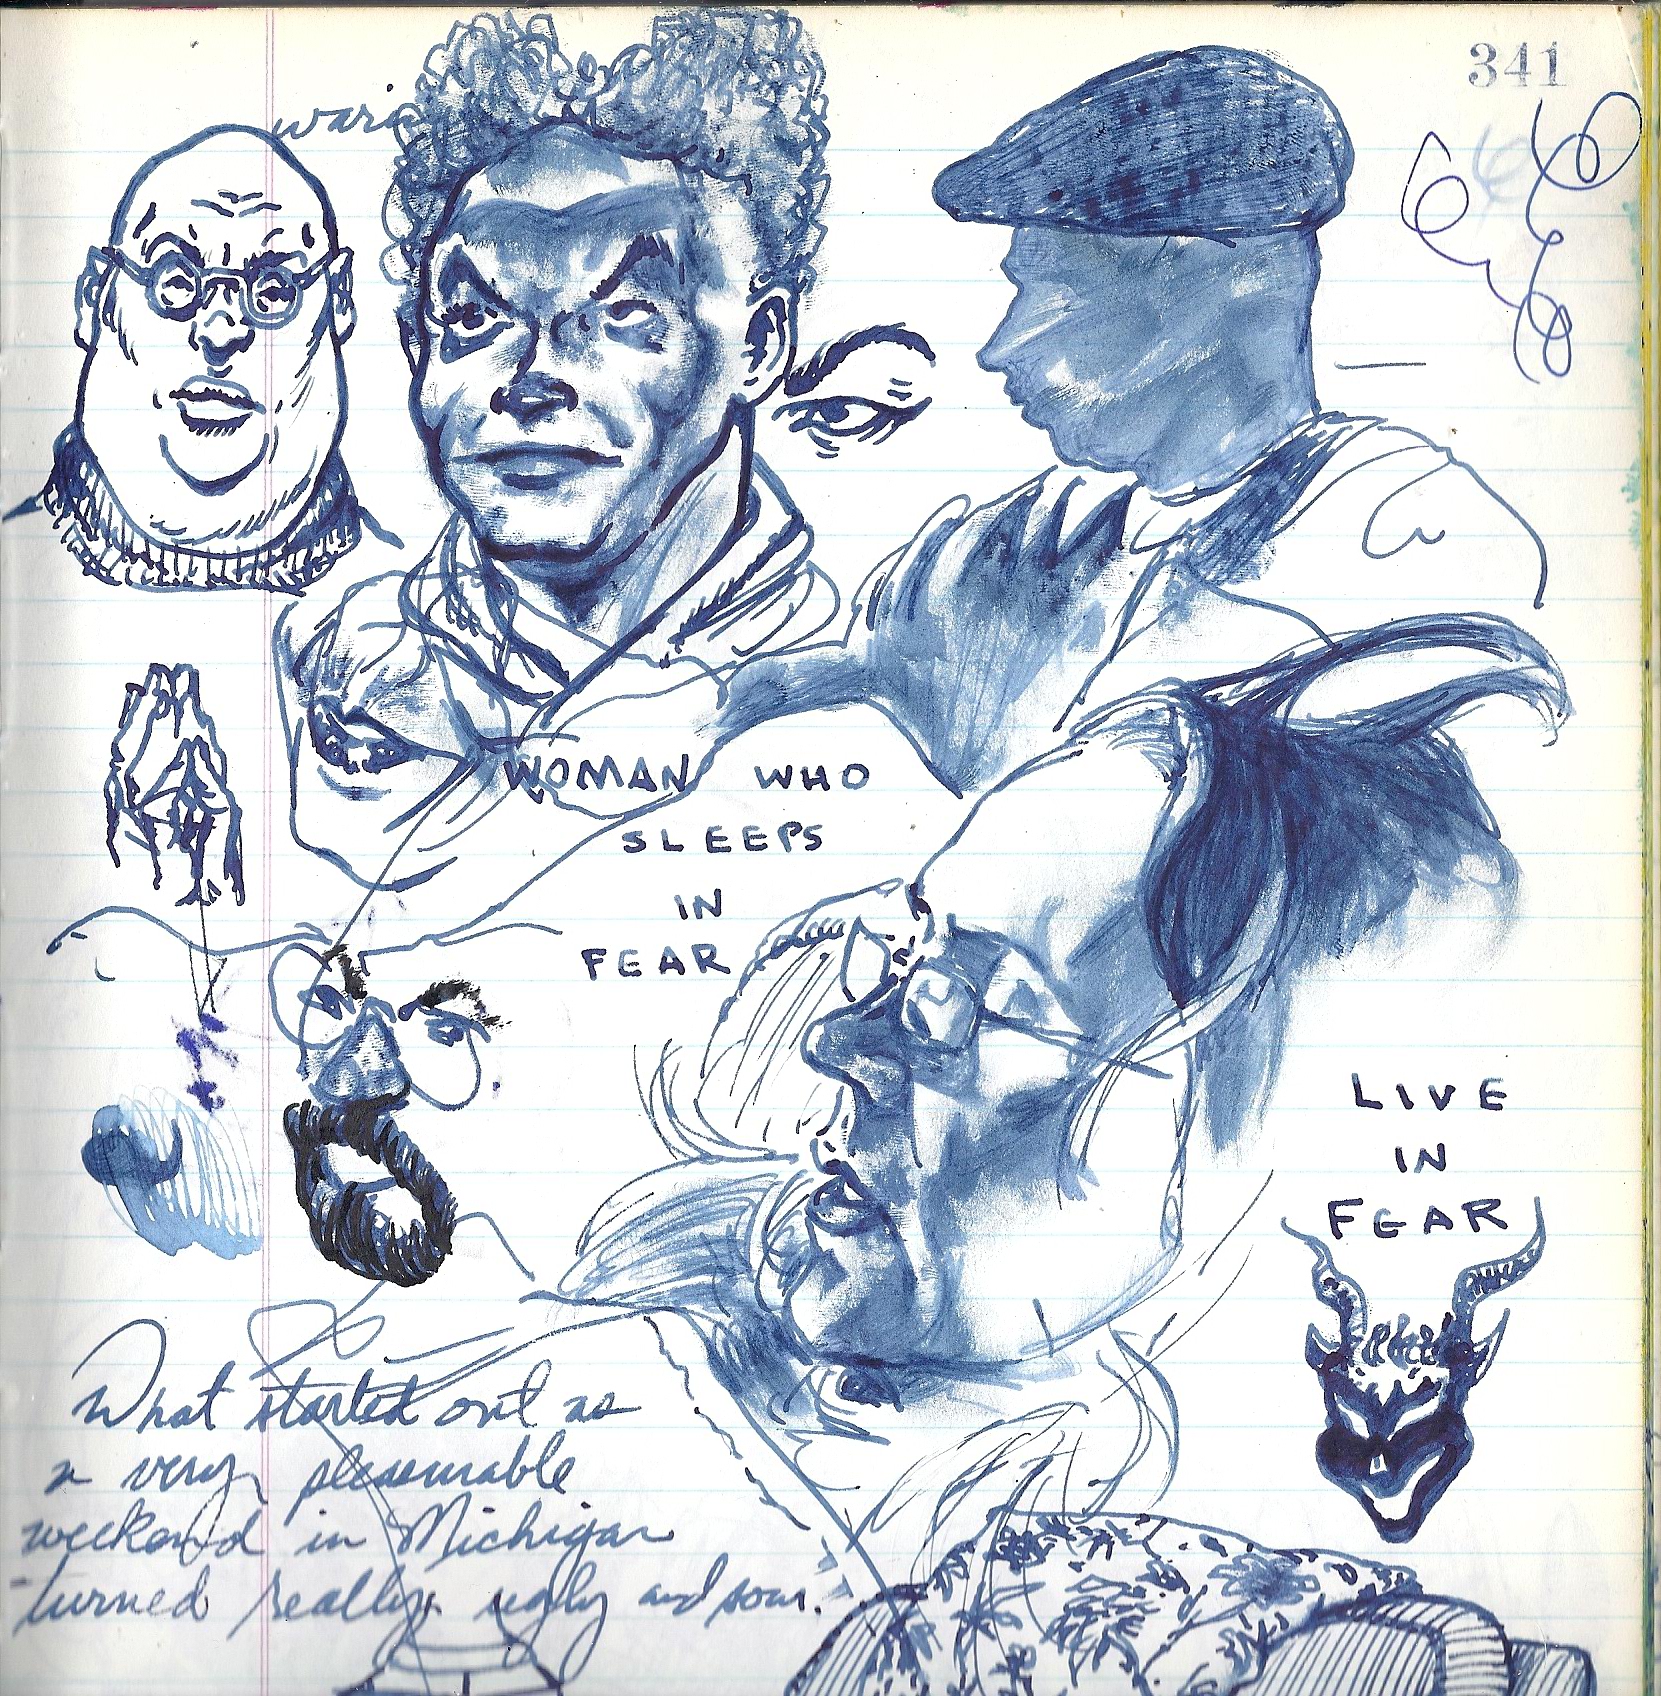 341
WOMAN WHO
SLEEPS
IN
FEAR
LIVE
IN
FEAR
What started out as
a very pleasurable
weekend in Michigan
turned really ugly and sour.